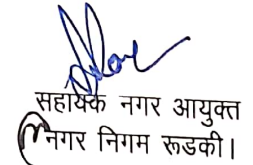 सहायक नगर आयुक्त
नगर निगम रूडकी।